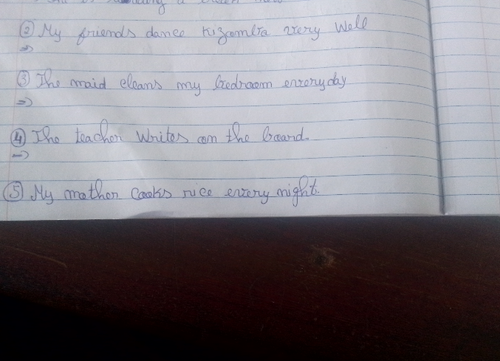 ② My friends dance Kizomba very well
=>
③ The maid cleans my bedroom everyday
=>
④ The teacher writes on the board.
=>
⑤ My mother cooks rice every night.